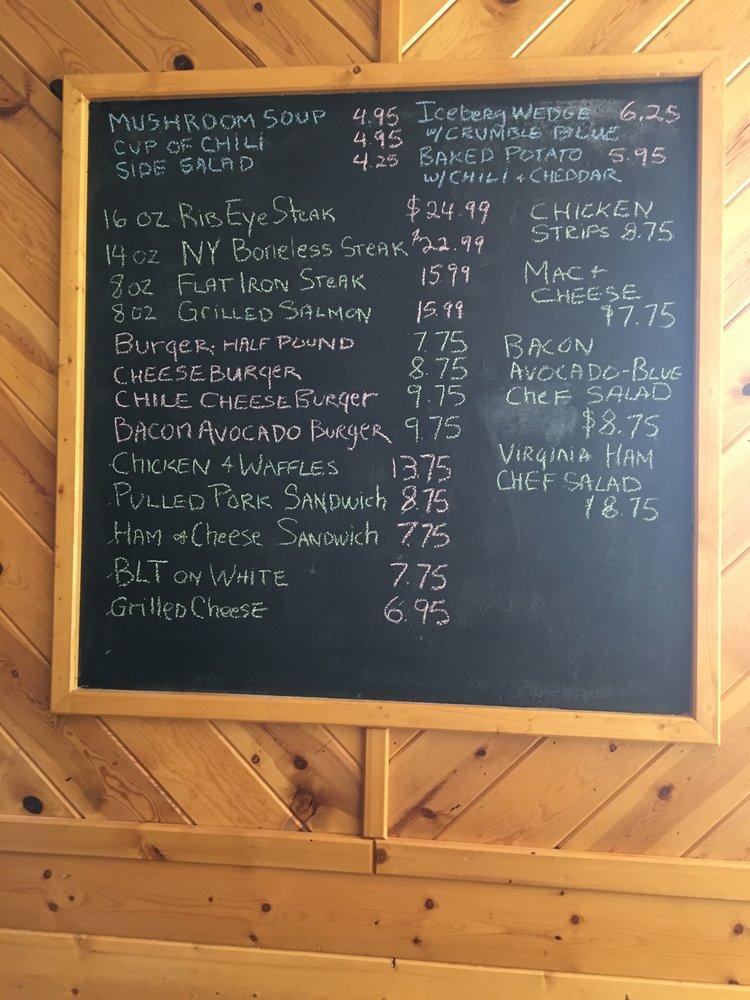 MUSHROOM SOUP 4.95
CUP OF CHILI 4.95
SIDE SALAD 4.25
Iceberg WEDGE 6.25
w/CRUMBLE BLUE
BAKED POTATO 5.95
w/CHILI + CHEDDAR
16 OZ RIB EYE STEAK $24.99
14 OZ NY Boneless STEAK $22.99
8 OZ FLAT IRON STEAK 15.99
8 OZ GRILLED SALMON 15.99
Burger, HALF POUND 7.75
CHEESEBURGER 8.75
CHILE CHEESEBurger 9.75
BACON AVOCADO Burger 9.75
CHICKEN & WAFFLES 13.75
PULLED PORK SANDWICH 8.75
HAM & Cheese SANDWICH 7.75
BLT ON WHITE 7.75
Grilled Cheese 6.95
CHICKEN
STRIPS 8.75
MAC +
CHEESE
$7.75
BACON
AVOCADO-BLUE
Chef SALAD
$8.75
VIRGINIA HAM
CHEF SALAD
8.75